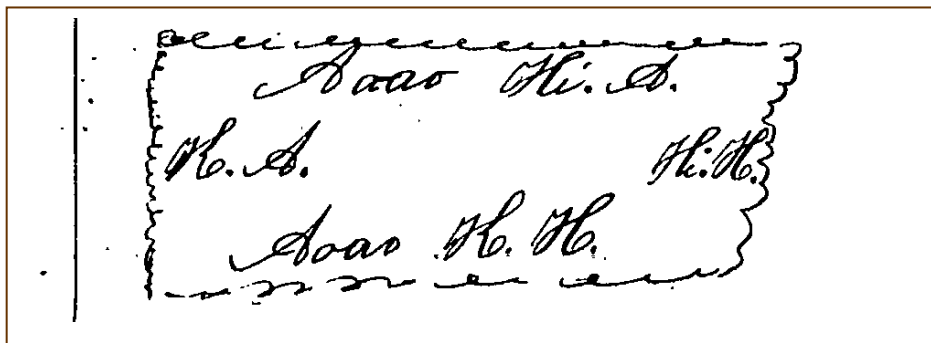 Aoao Hi. A.
K. A. Hi. H.
Aoao K. H.